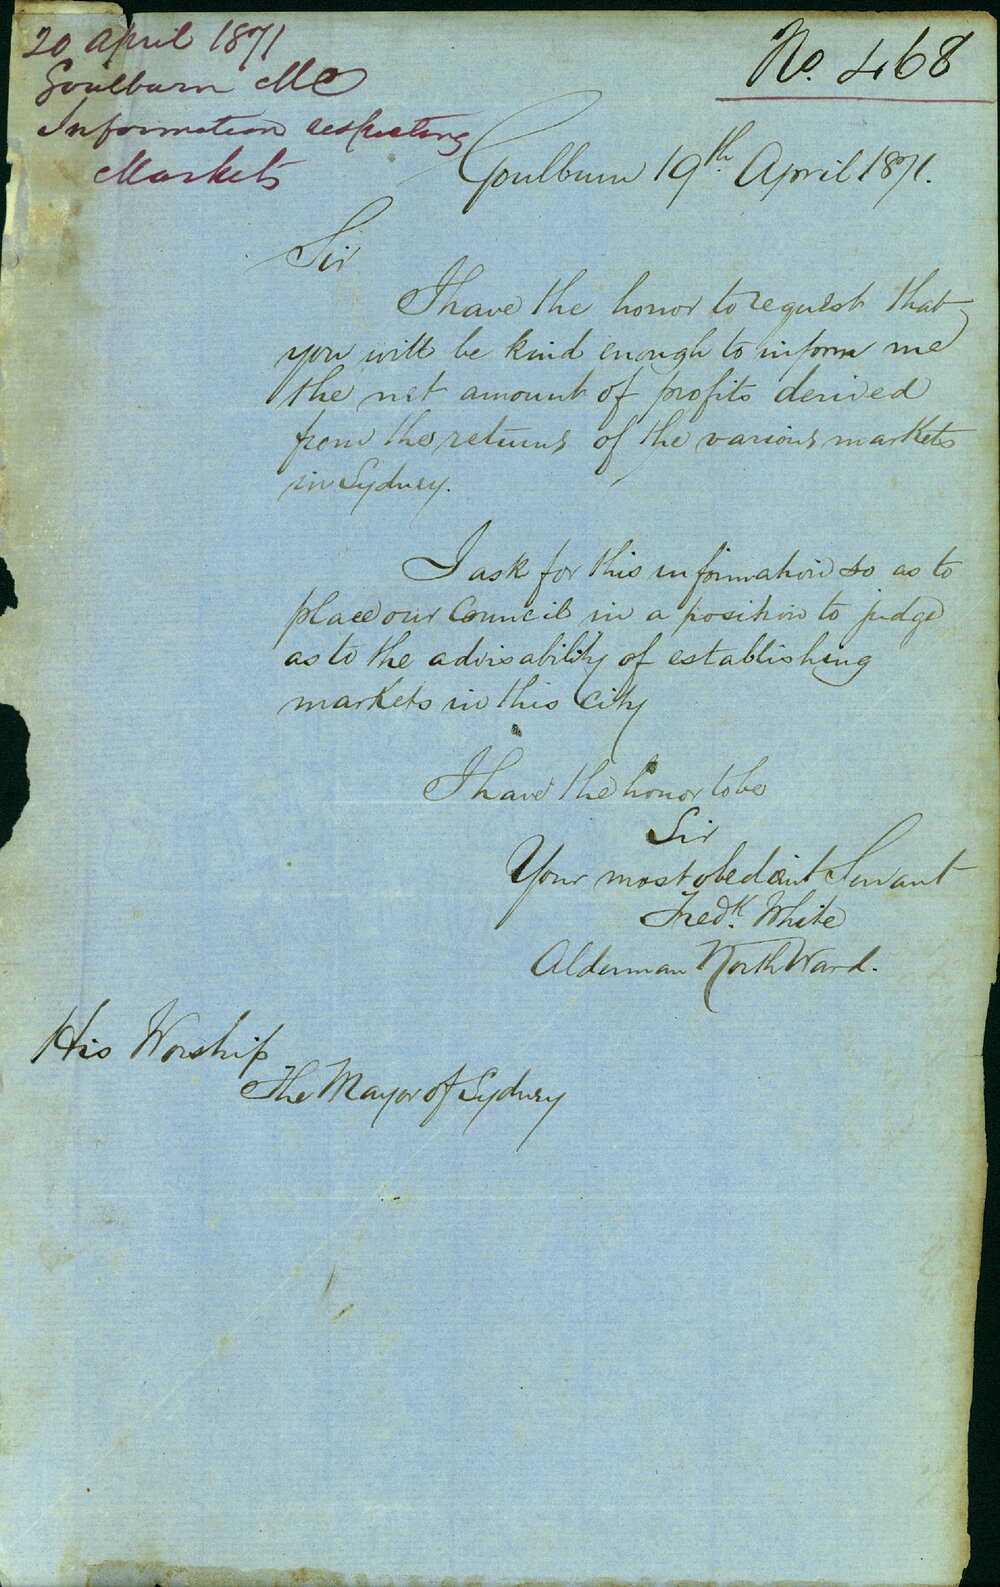 20 April 1871
Goulburn MC
Information respecting
Markets
No. 468
Goulburn 19th. April 1871.
Sir
I have the honor to request that
you will be kind enough to inform me
the net amount of profits derived
from the returns of the various markets
in Sydney.
I ask for this information so as to
place our Council in a position to judge
as to the advisability of establishing
markets in this City
I have the honor to be
Sir
Your most obedient Servant
Fredk. White
Alderman North Ward.
His Worship
The Mayor of Sydney